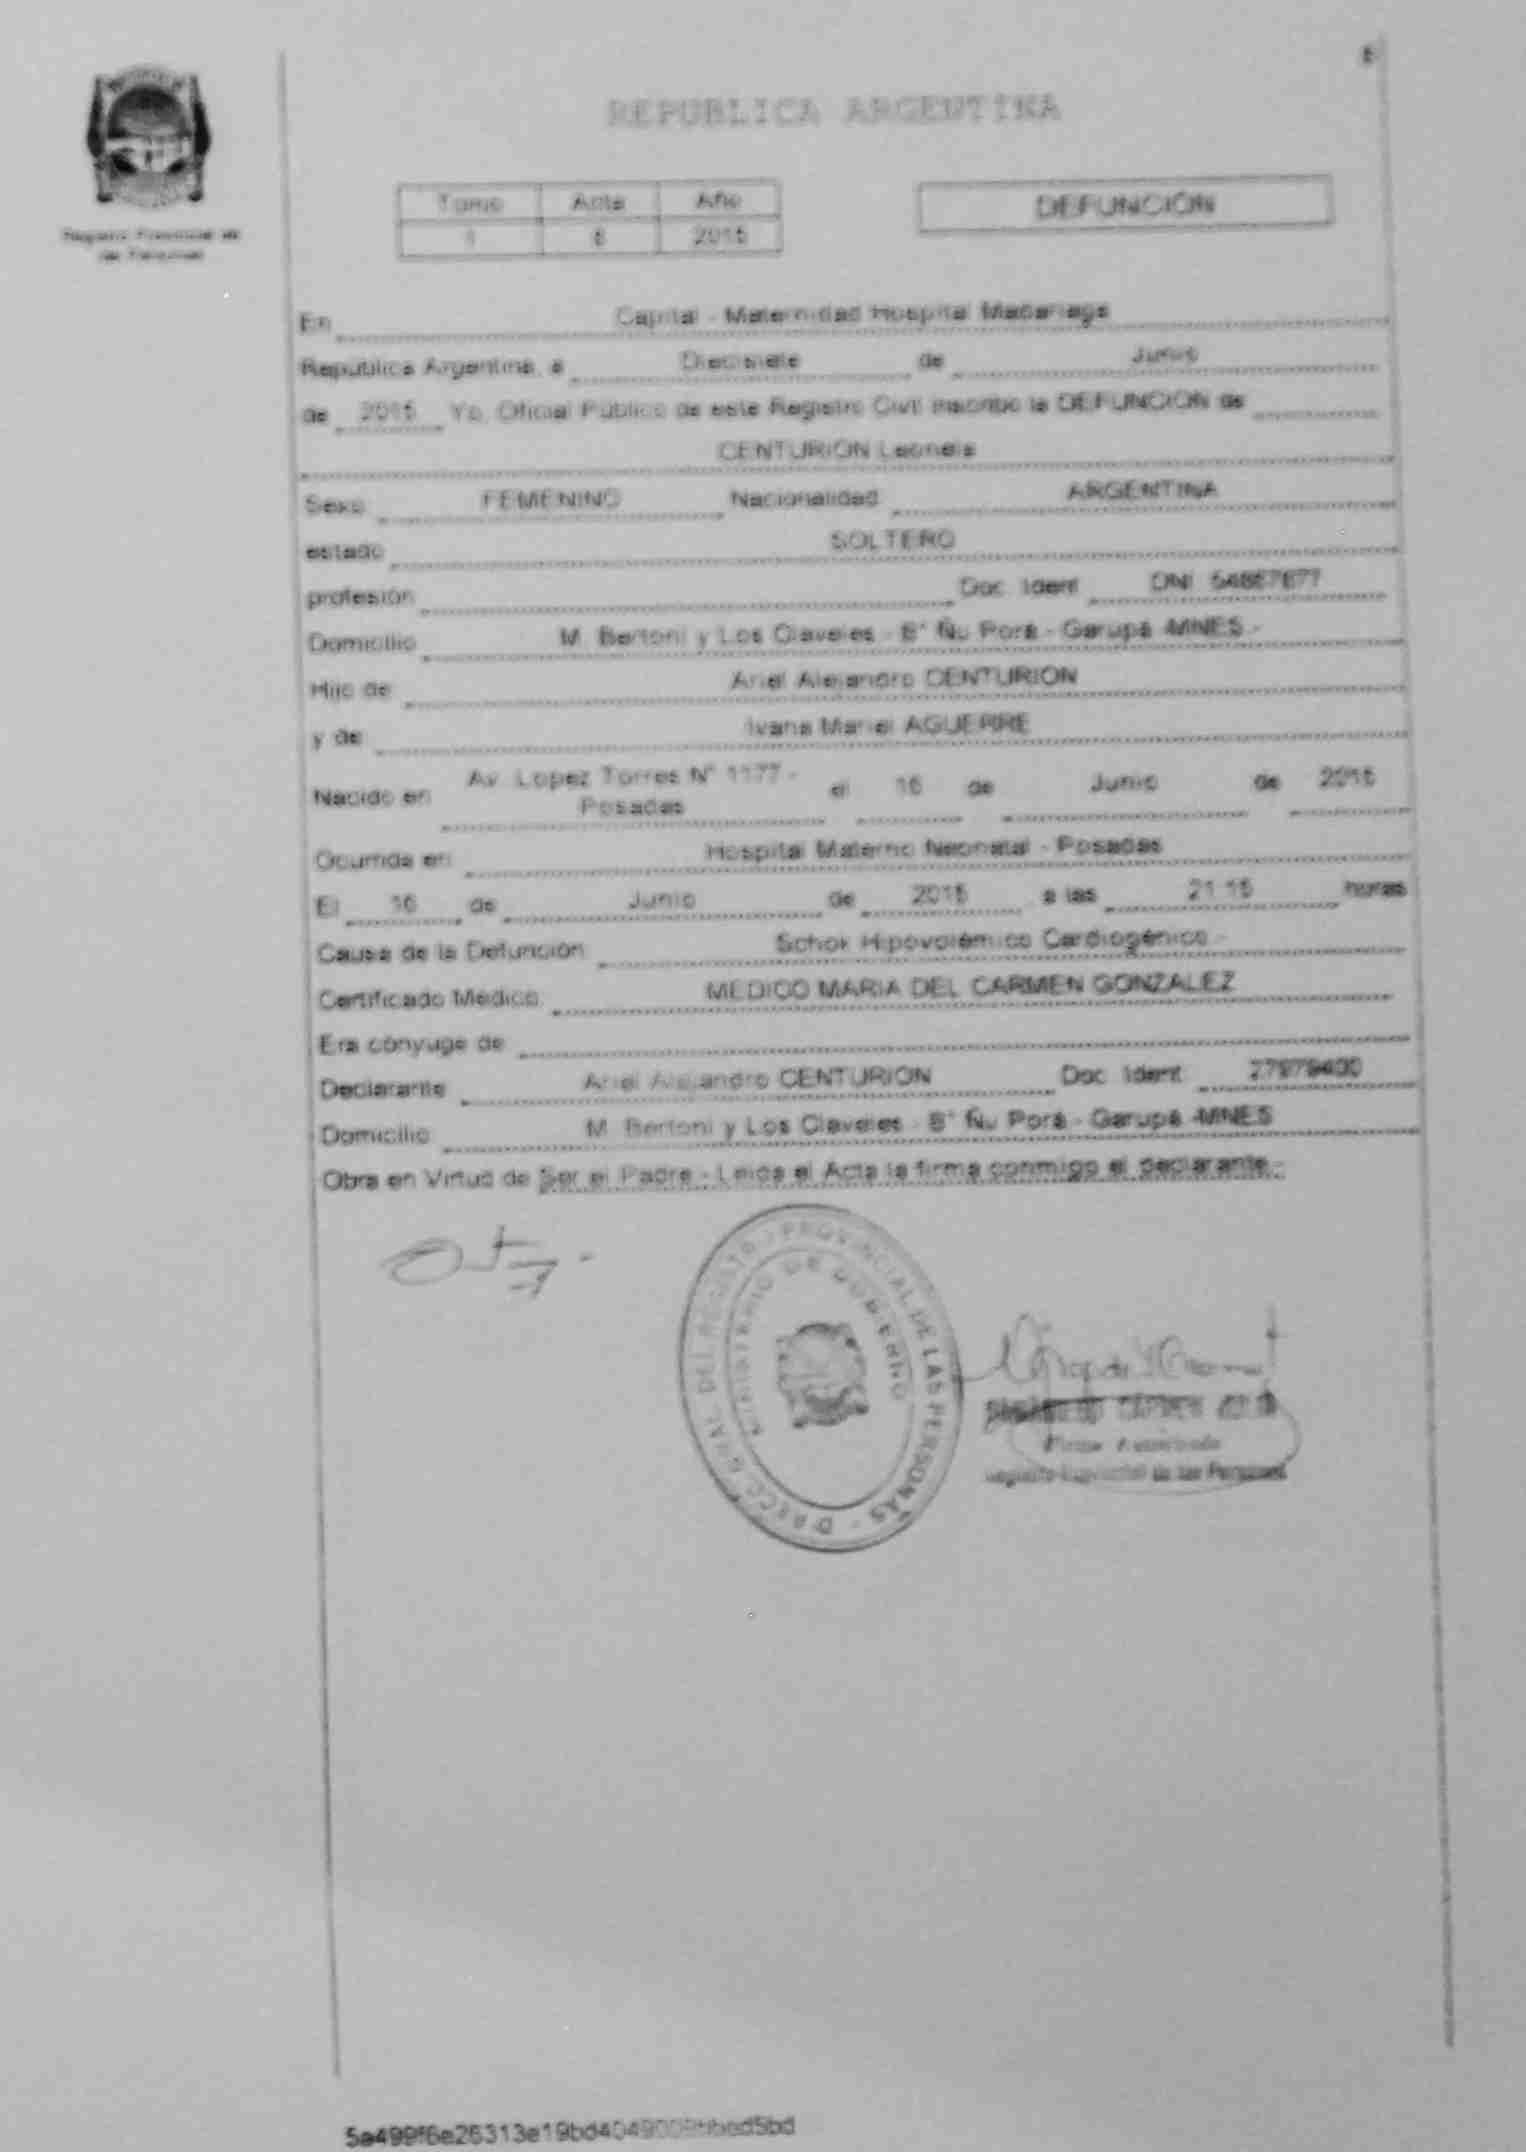 REPUBLICA ARGENTINA
Registro Provincial de
las Personas
Tomo Acta Año
1 2015
DEFUNCIÓN
En Capital - Maternidad Hospital Madariaga
República Argentina, a Diecisiete de Junio
de 2015 Yo, Oficial Público de este Registro Civil inscribo la DEFUNCION de
CENTURION Leonela
Sexo FEMENINO Nacionalidad ARGENTINA
estado SOLTERO
profesión Doc. Ident. DNI
Domicilio M. Bertoni y Los Claveles - B° Ñu Porá - Garupá -MNES.-
Hijo de Ariel Alejandro CENTURION
y de Ivana Mariel AGUERRE
Nacido en Av. Lopez Torres N° 1177 - Posadas el 16 de Junio de 2015
Ocurrida en Hospital Materno Neonatal - Posadas
El 16 de Junio de 2015 a las 21:15 horas
Causa de la Defunción Schok Hipovolémico Cardiogénico.-
Certificado Médico MEDICO MARIA DEL CARMEN GONZALEZ
Era cónyuge de
Declarante Ariel Alejandro CENTURION Doc. Ident.
Domicilio M. Bertoni y Los Claveles - B° Ñu Porá - Garupá -MNES
Obra en Virtud de Ser el Padre - Leida el Acta la firma conmigo el declarante.-
DIRECC. GRAL. DEL REGISTRO PROVINCIAL DE LAS PERSONAS
MINISTERIO DE GOBIERNO
Firma Autorizada
Registro Provincial de las Personas